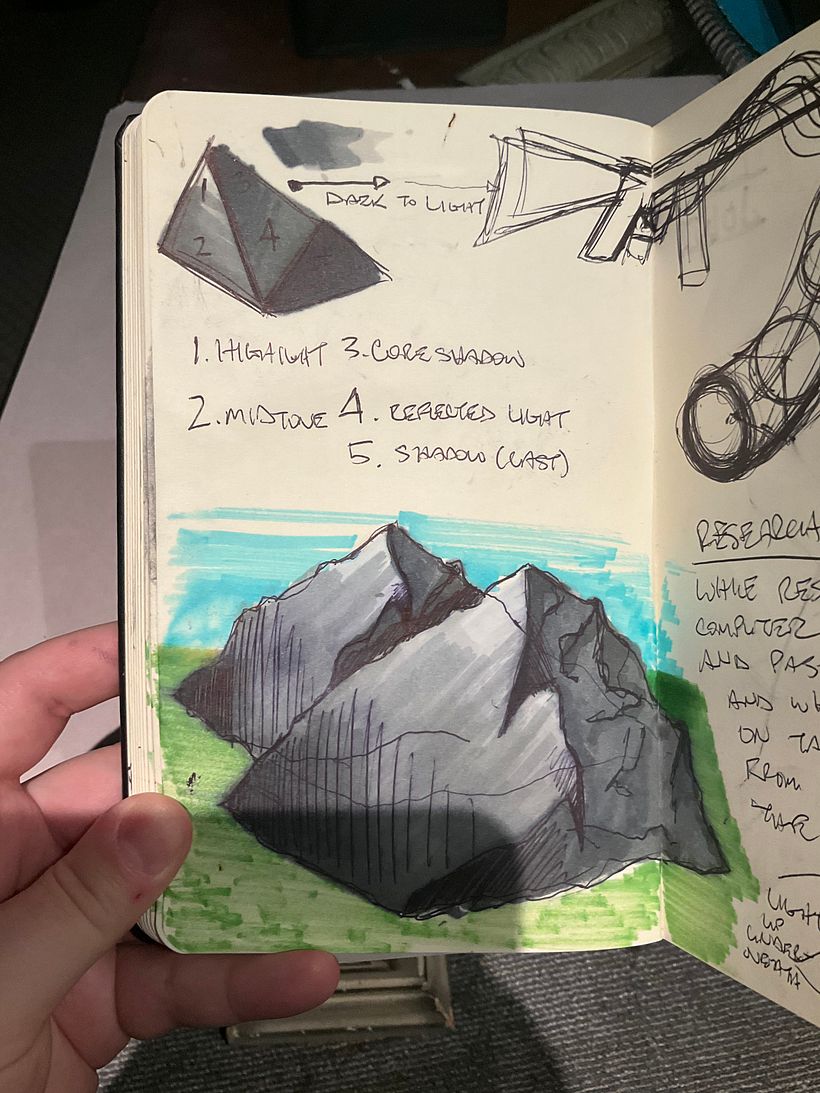 1 3
2 4 5
DARK TO LIGHT
1. HIGHLIGHT 3. CORE SHADOW
2. MIDTONE 4. REFLECTED LIGHT
5. SHADOW (CAST)
RESEARCH
WHILE RES
COMPUTER
AND PAS
AND WH
ON TA
FROM
THAR
LIGHT
UP
UNDER
NEATH